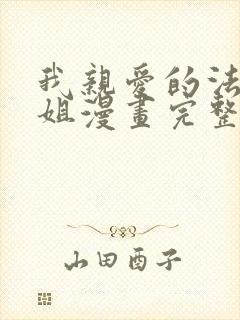 我親愛的法
姐漫畫完整
山田酉子